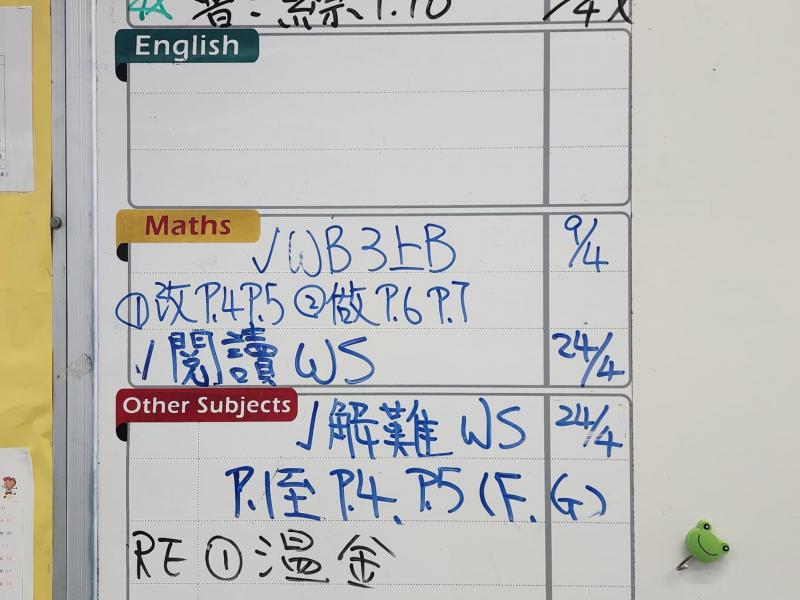 普:綜 P.10
English
Maths
√WB3上B 9/4
①改P.4P.5 ②做P.6 P.7
√閱讀 WS 24/4
Other Subjects
√解難 WS 24/4
P.1至 P.4、P.5(F、G)
RE ① 溫金